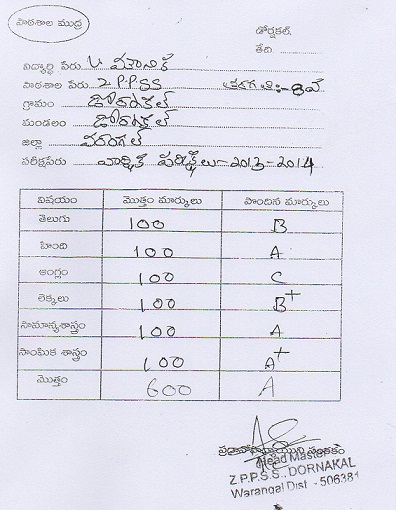 పాఠశాల ముద్ర
డోర్నకల్,
తేది ............
విద్యార్థి పేరు U మౌనిక
పాఠశాల పేరు Z.P.P.SS తరగతి:- 8వ
గ్రామం డోర్నకల్
మండలం డోర్నకల్
జిల్లా వరంగల్
పరీక్షపేరు వార్షిక పరీక్షలు-2013-2014
విషయం మొత్తం మార్కులు పొందిన మార్కులు
తెలుగు 100 B
హింది 100 A
ఆంగ్లం 100 C
లెక్కలు 100 B+
సామాన్యశాస్త్రం 100 A
సాంఘిక శాస్త్రం 100 A+
మొత్తం 600 A
ప్రధానోపాధ్యాయుని సంతకం
Head Master
Z.P.P.S.S., DORNAKAL
Warangal Dist - 506381